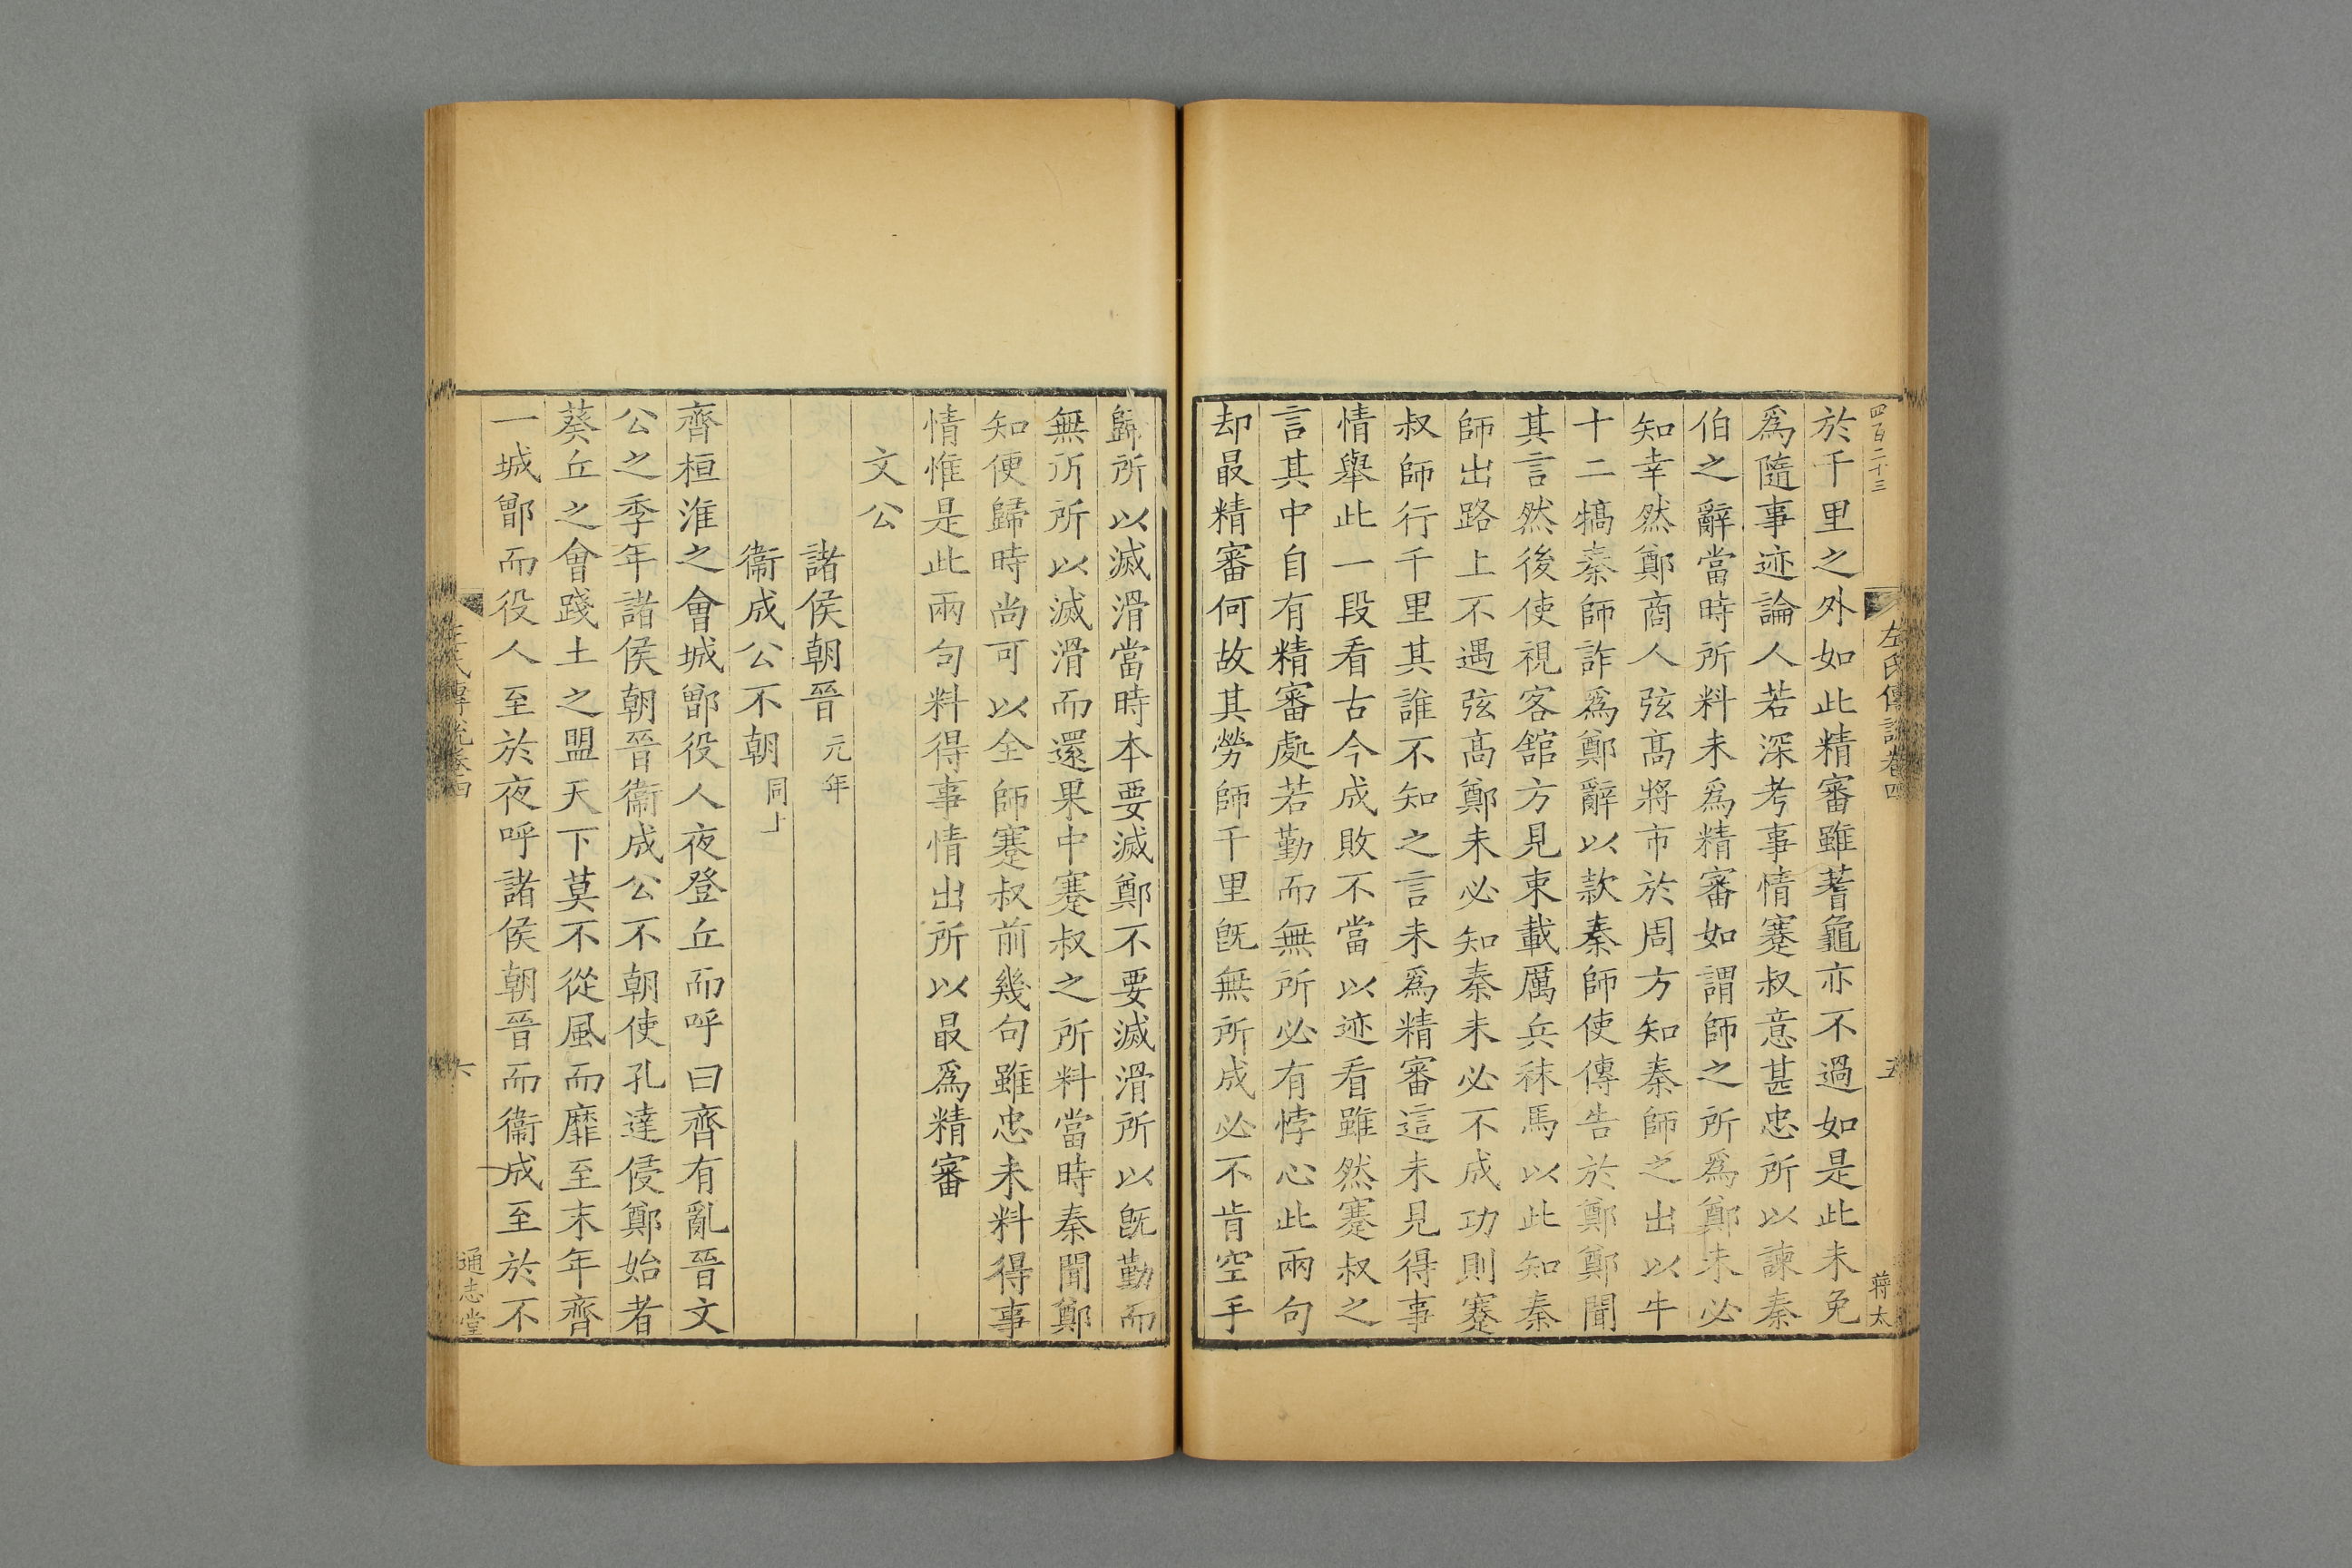 四百二十三
左氏傳說卷四
五
蔣太
於千里之外如此精審雖蓍龜亦不過如是此未免
爲隨事迹論人若深考事情蹇叔意甚忠所以諫秦
伯之辭當時所料未爲精審如謂師之所爲鄭未必
知幸然鄭商人弦髙將市於周方知秦師之出以牛
十二犒秦師詐爲鄭辭以款秦師使傳告於鄭鄭聞
其言然後使視客舘方見束載厲兵秣馬以此知秦
師出路上不遇弦髙鄭未必知秦未必不成功則蹇
叔師行千里其誰不知之言未爲精審這未見得事
情舉此一段看古今成敗不當以迹看雖然蹇叔之
言其中自有精審處若勤而無所必有悖心此兩句
却最精審何故其勞師千里旣無所成必不肯空手
歸所以滅滑當時本要滅鄭不要滅滑所以旣勤而
無所所以滅滑而還果中蹇叔之所料當時秦聞鄭
知便歸時尚可以全師蹇叔前幾句雖忠未料得事
情惟是此兩句料得事情出所以最爲精審
文公
諸侯朝晉元年
衞成公不朝同上
齊桓淮之會城鄫役人夜登丘而呼曰齊有亂晉文
公之季年諸侯朝晉衞成公不朝使孔達侵鄭始者
葵丘之會踐土之盟天下莫不從風而靡至末年齊
一城鄫而役人至於夜呼諸侯朝晉而衞成至於不
左氏傳說卷四
六
通志堂